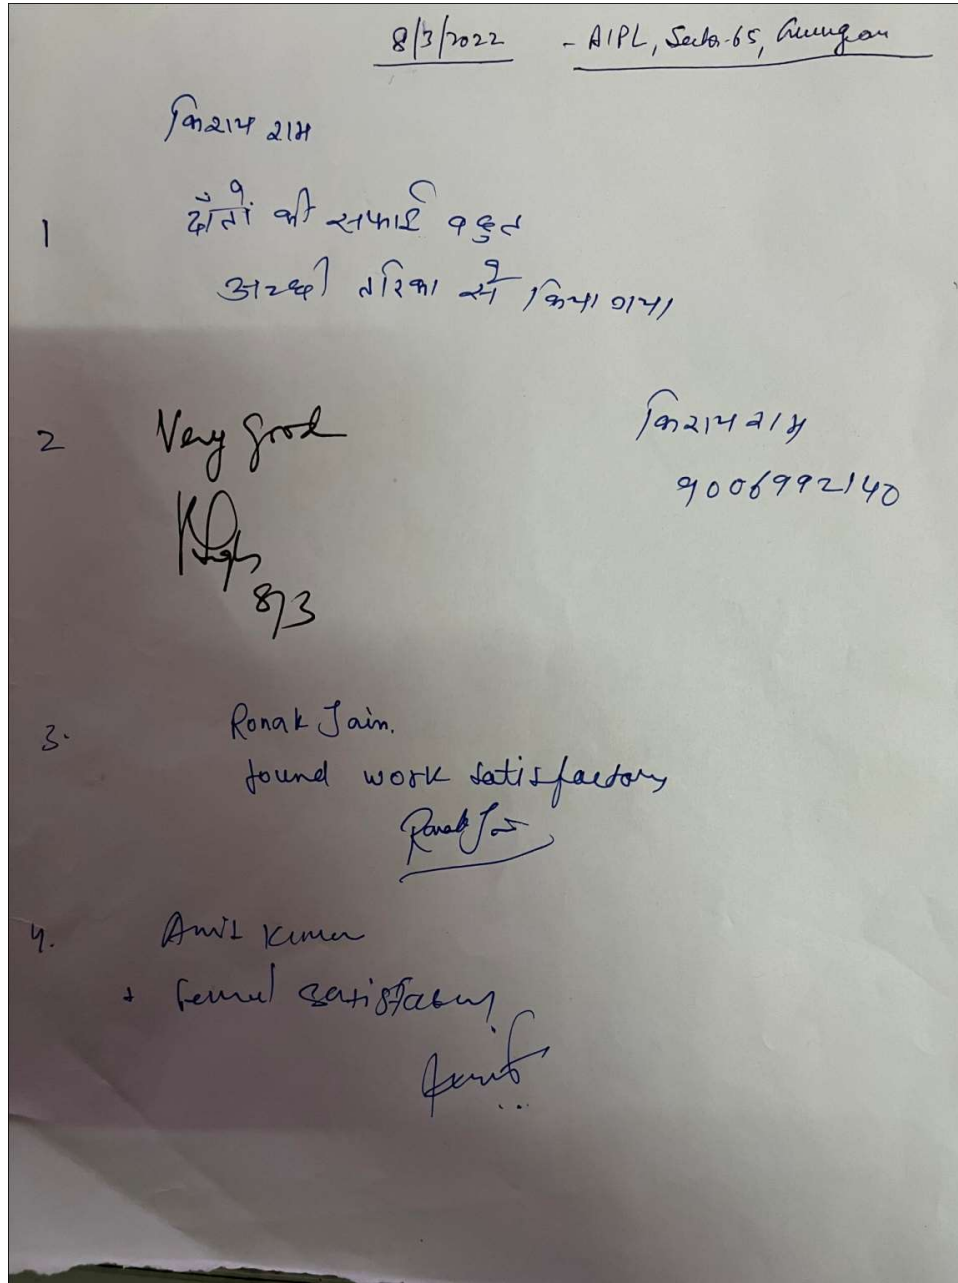 8/3/2022 - AIPL, Sector-65, Gurugram
किशय राम
1 दाँतों की सफाई बहुत
अच्छी तरिका से किया गया
2 Very good
किशय राम
9006992140
8/3
3. Ronak Jain.
found work satisfactory
Ronak Jain
4. Amit Kumar
satisfactory
Amit